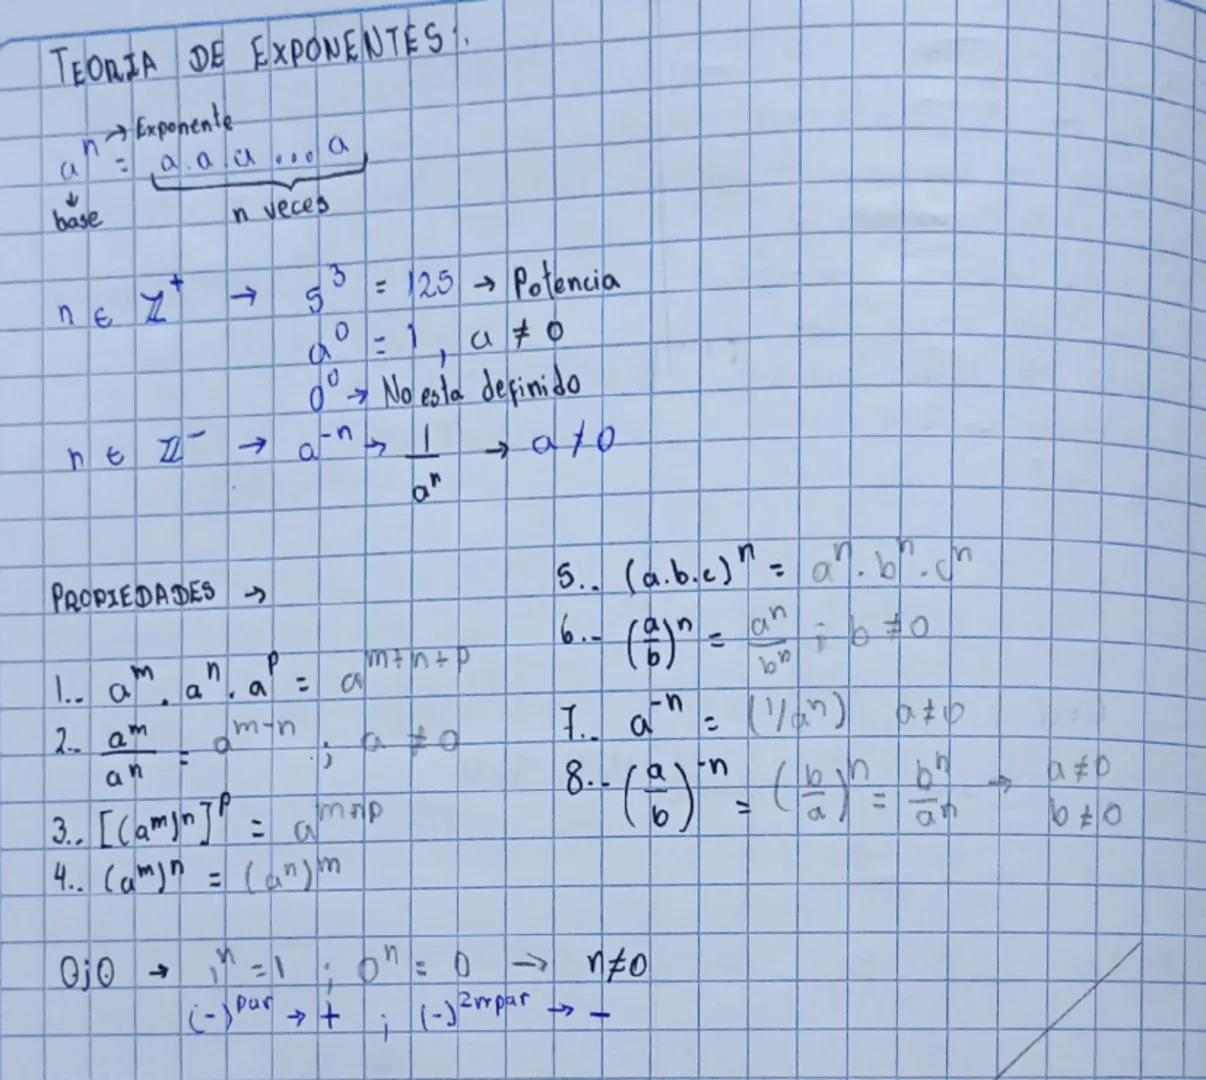 TEORIA DE EXPONENTES:
aⁿ → Exponente = a.a.a...a
↓ base n veces
n ∈ Z⁺ → 5³ = 125 → Potencia
a⁰ = 1, a ≠ 0
0⁰ → No esta definido
n ∈ Z⁻ → a⁻ⁿ → 1/aⁿ → a ≠ 0
PROPIEDADES →
1.. aᵐ . aⁿ . aᵖ = aᵐ⁺ⁿ⁺ᵖ
2.. aᵐ/aⁿ = aᵐ⁻ⁿ ; a ≠ 0
3.. [(aᵐ)ⁿ]ᵖ = aᵐⁿᵖ
4.. (aᵐ)ⁿ = (aⁿ)ᵐ
5.. (a.b.c)ⁿ = aⁿ.bⁿ.cⁿ
6.- (a/b)ⁿ = aⁿ/bⁿ ; b ≠ 0
7.. a⁻ⁿ = (1/aⁿ) a ≠ 0
8.- (a/b)⁻ⁿ = (b/a)ⁿ = bⁿ/aⁿ → a ≠ 0
b ≠ 0
OjO → 1ⁿ = 1 ; 0ⁿ = 0 → n ≠ 0
(-)ᵖᵃʳ → + ; (-)^impar → -